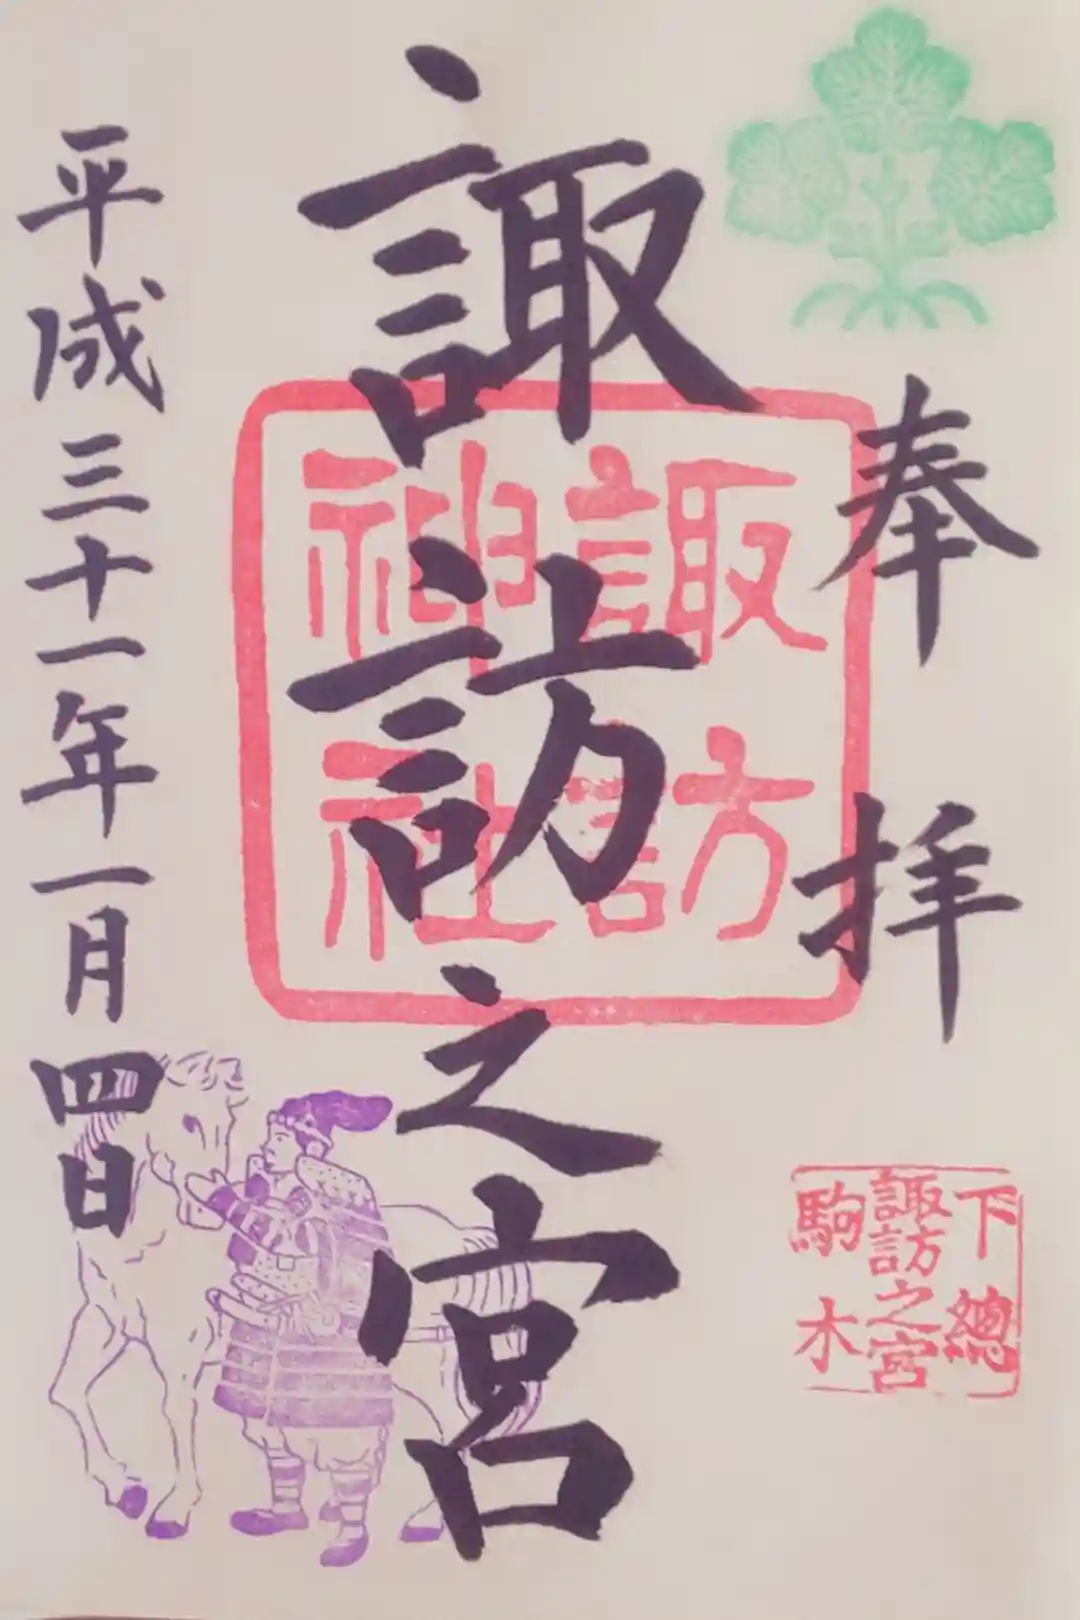 奉拝
諏訪之宮
平成三十一年一月四日
諏訪
神社
下總
諏訪之宮
駒木